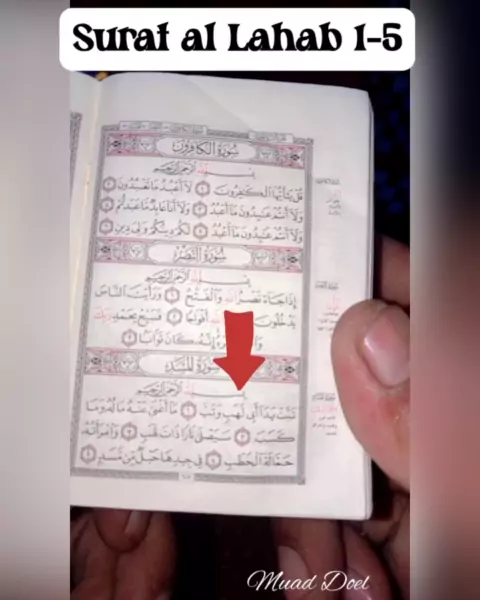 Surat al Lahab 1-5
سورة الكافرون
بسم الله الرحمن الرحيم
قل يأيها الكفرون ١ لا أعبد ما تعبدون ٢
ولا أنتم عبدون ما أعبد ٣ ولا أنا عابد ما عبدتم ٤
ولا أنتم عبدون ما أعبد ٥ لكم دينكم ولى دين ٦
سورة النصر
بسم الله الرحمن الرحيم
إذا جاء نصر الله والفتح ١ ورأيت الناس
يدخلون الله أفواجا ٢ فسبح بحمد ربك
إنه كان توابا ٣
سورة المسد
بسم الله الرحمن الرحيم
تبت يدا أبى لهب وتب ١ ما أغنى عنه ماله وما
كسب ٢ سيصلى نارا ذات لهب ٣ وامرأته
حمالة الحطب ٤ فى جيدها حبل من مسد ٥
Muad Doel